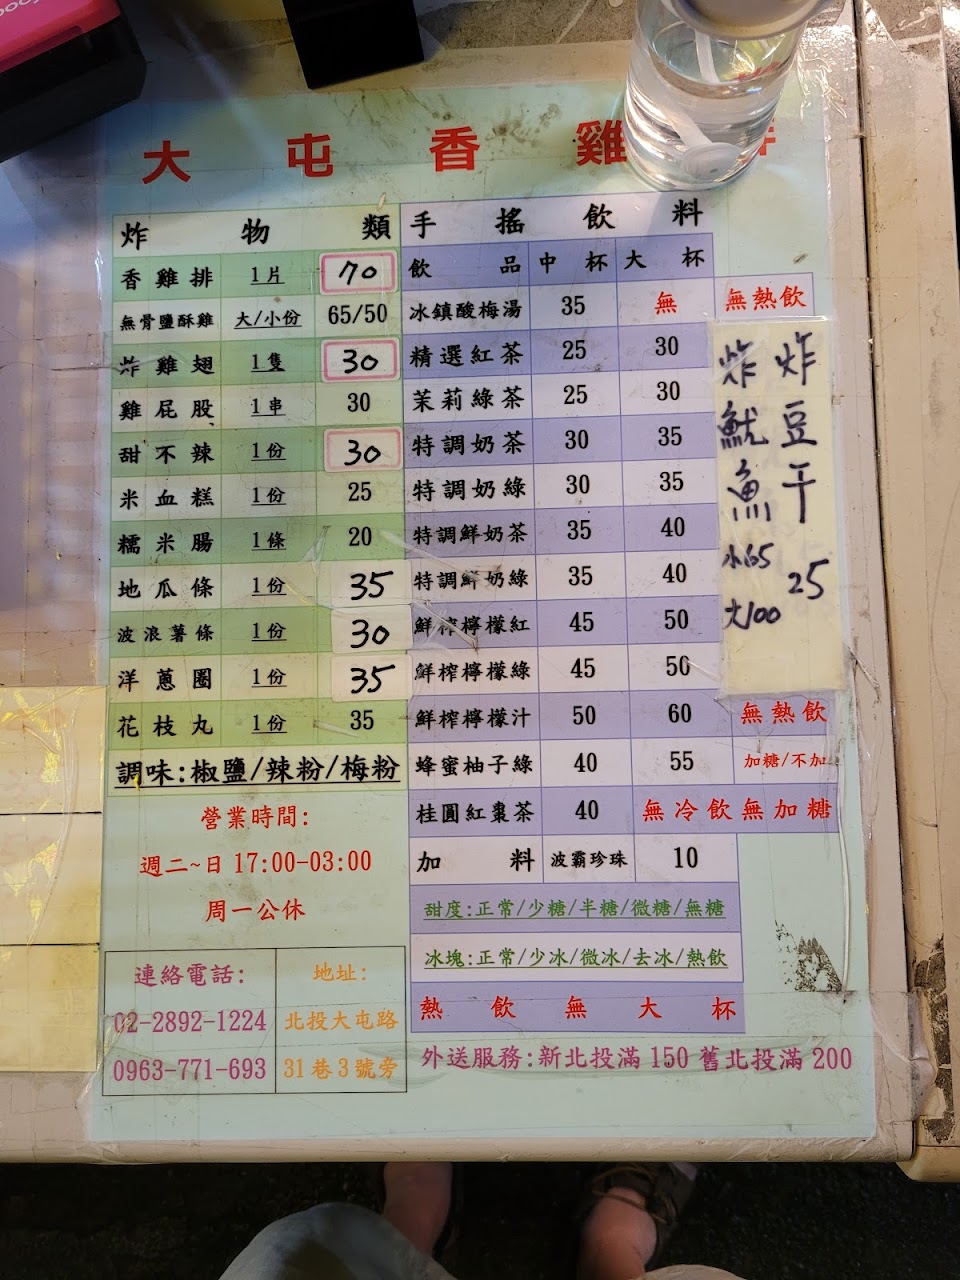 大屯香雞
炸物類
香雞排 1片 70
無骨鹽酥雞 大/小份 65/50
炸雞翅 1隻 30
雞屁股 1串 30
甜不辣 1份 30
米血糕 1份 25
糯米腸 1條 20
地瓜條 1份 35
波浪薯條 1份 30
洋蔥圈 1份 35
花枝丸 1份 35
調味:椒鹽/辣粉/梅粉
營業時間:
週二~日 17:00-03:00
周一公休
連絡電話:
02-2892-1224
0963-771-693
地址:
北投大屯路
31巷3號旁
手搖飲料
飲品 中杯 大杯
冰鎮酸梅湯 35 無 無熱飲
精選紅茶 25 30
茉莉綠茶 25 30
特調奶茶 30 35
特調奶綠 30 35
特調鮮奶茶 35 40
特調鮮奶綠 35 40
鮮榨檸檬紅 45 50
鮮榨檸檬綠 45 50
鮮榨檸檬汁 50 60 無熱飲
蜂蜜柚子綠 40 55 加糖/不加
桂圓紅棗茶 40 無冷飲無加糖
加料 波霸珍珠 10
甜度:正常/少糖/半糖/微糖/無糖
冰塊:正常/少冰/微冰/去冰/熱飲
熱飲無大杯
外送服務:新北投滿 150 舊北投滿 200
炸豆干 25
炸魷魚
小65
大100